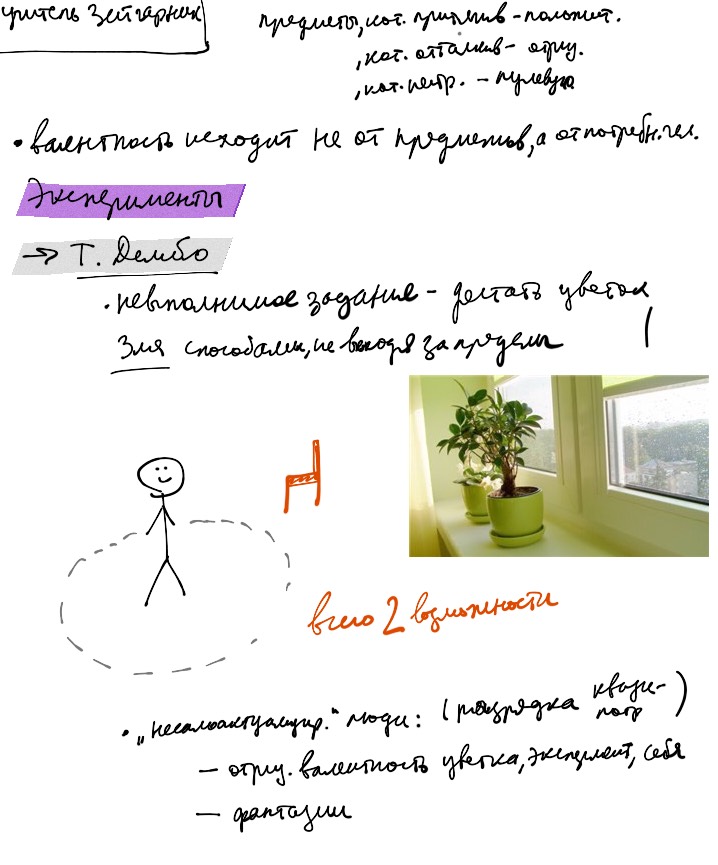 учитель Зейгарник
предметы, кот. притягив - положит.
, кот. отталкив - отриц.
, кот. нейтр. - нулевую
• валентность исходит не от предметов, а от потребн. чел.
Эксперименты
→ Т. Дембо
• невыполнимое задание - достать цветок
3мя способами, не выходя за пределы (
всего 2 возможности
• „несамоактуализир." люди: (разрядка квази-
потр )
— отриц. валентность цветка, эксперимент, себя
— фантазии